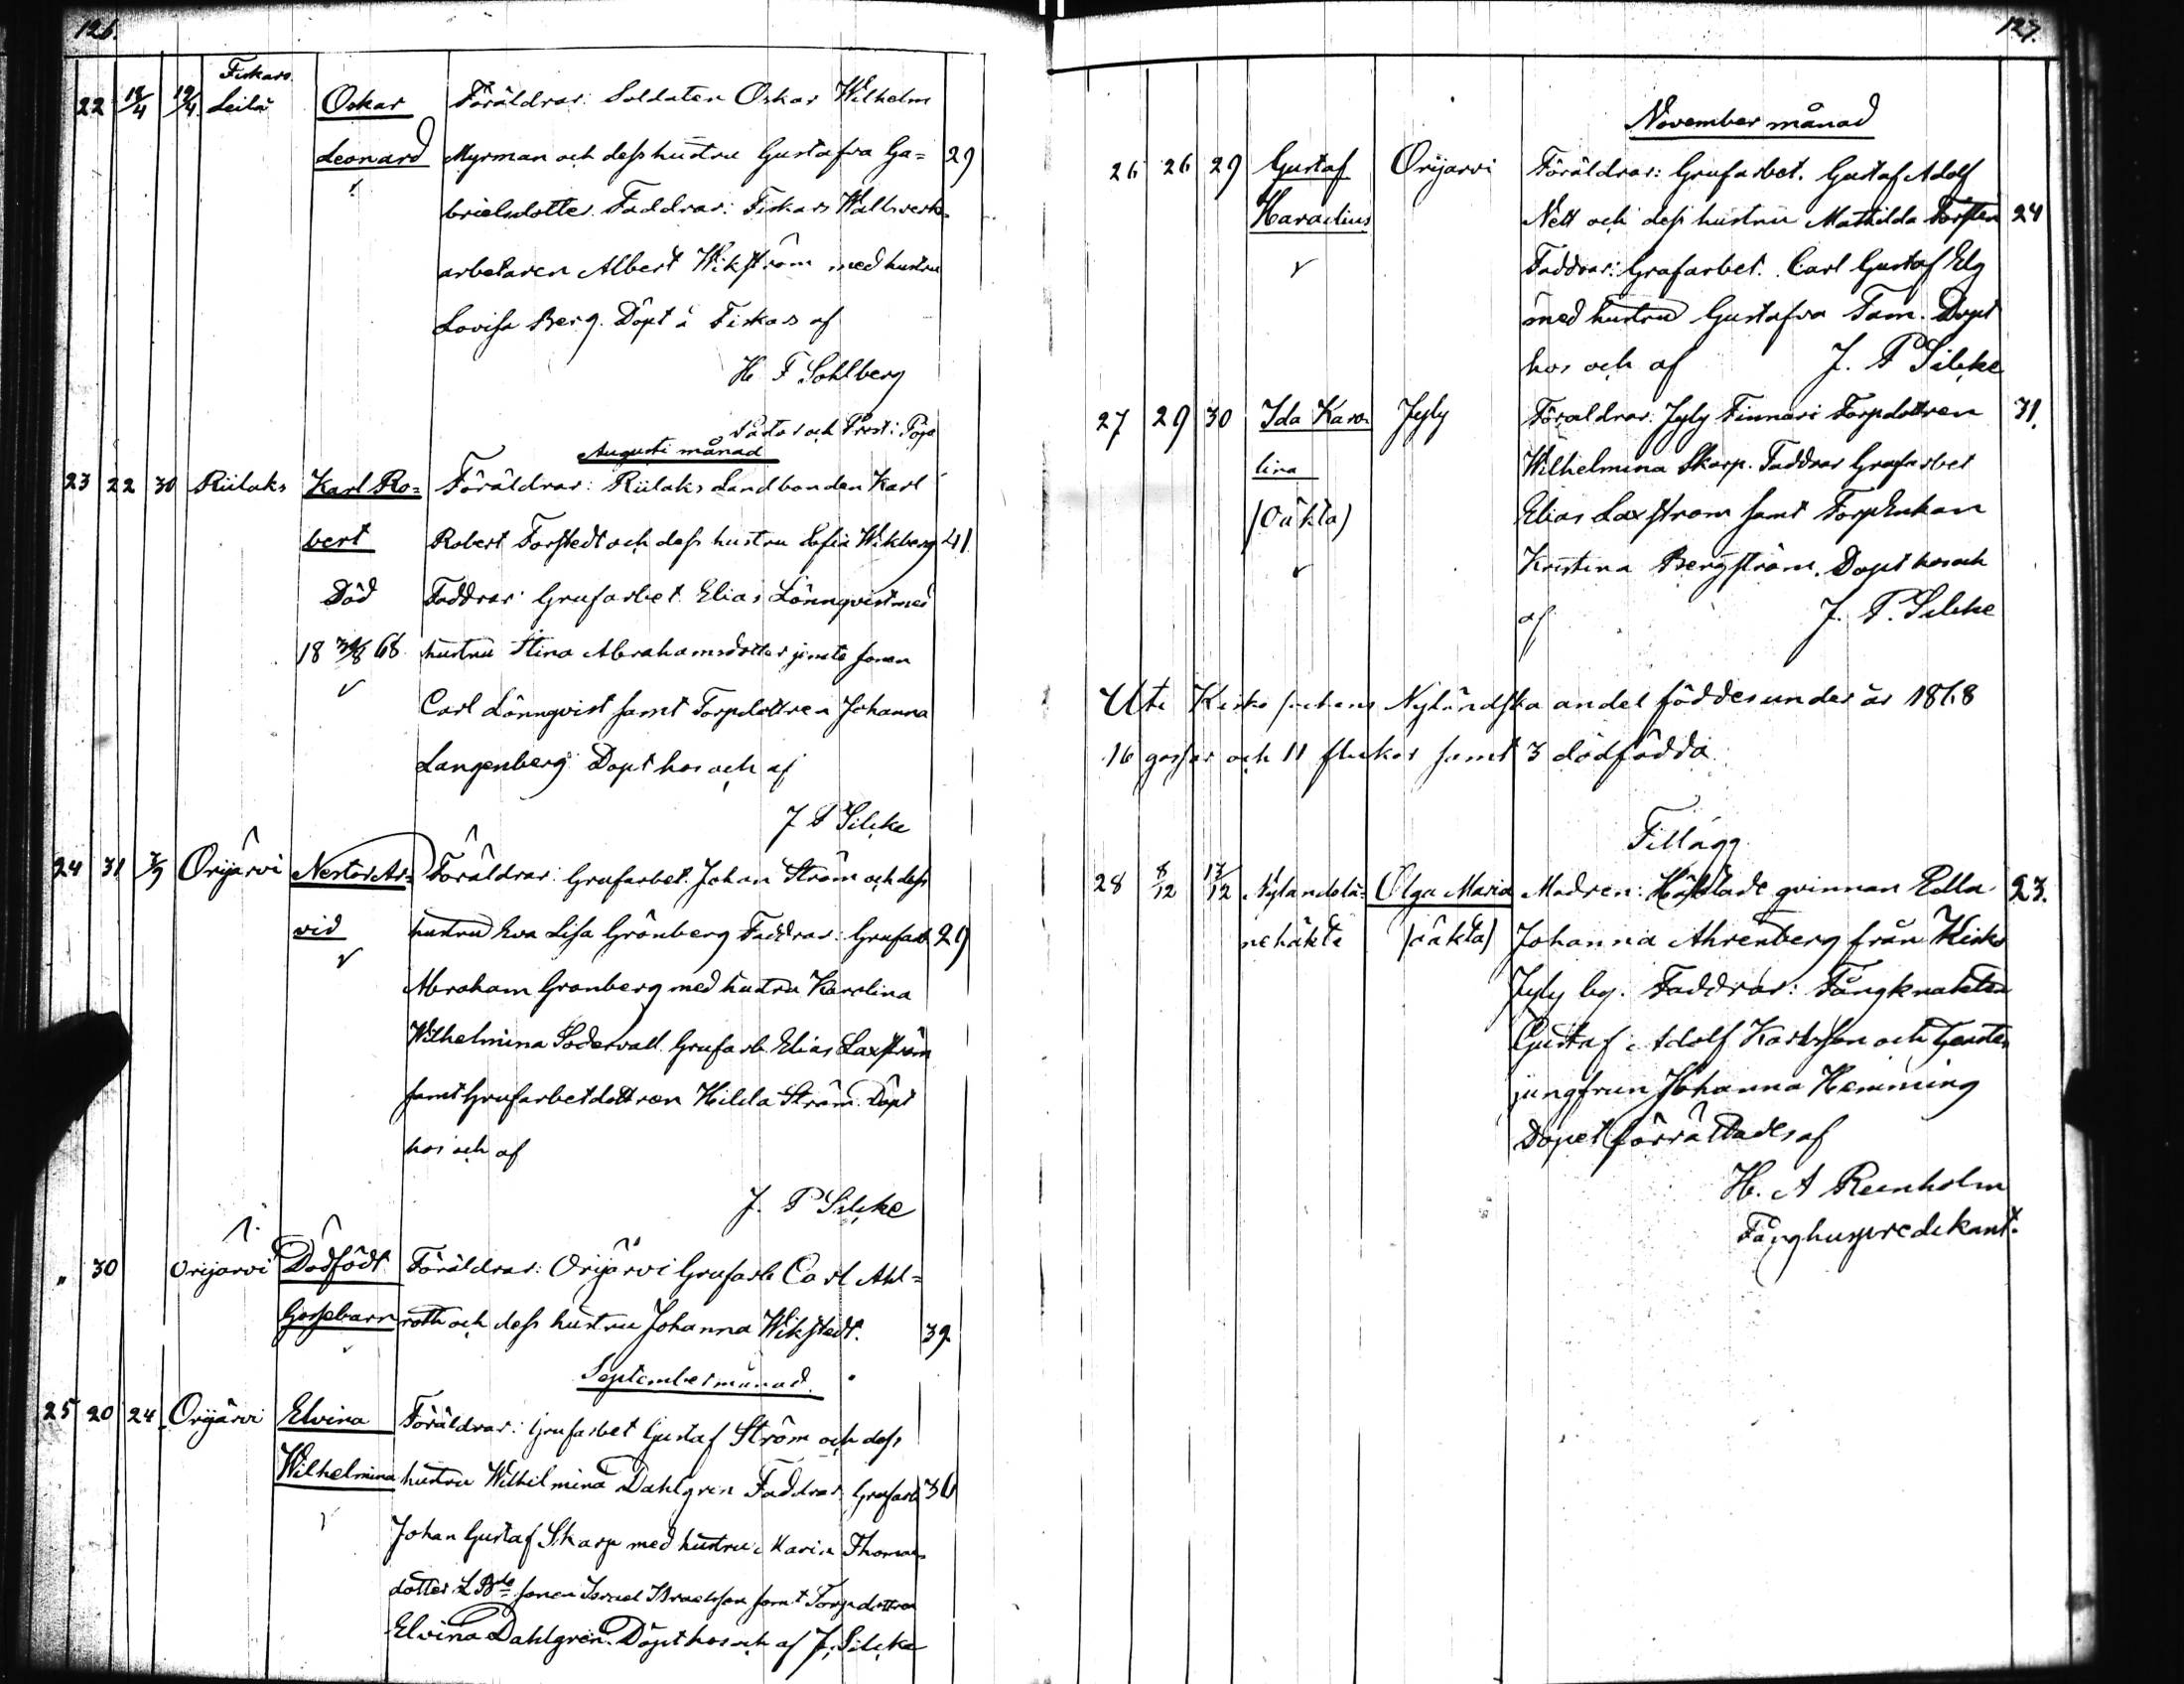 126.
Fiskars
22 18/4 19/4 Leilä Oskar Föräldrar: Soldaten Oskar Wilhelm
Leonard Myrman och dess hustru Gustafva Ga= 29
brielsdotter. Faddrar: Fiskars Wallsverks
arbetaren Albert Wikström med hustru
Lovisa Berg. Döpt å Fiskars af
H. F Sohlberg
Pastor och Prost i Pojo
Augusti månad
23 22 30 Riilaks Karl Ro= Föräldrar: Riilaks Landbonden Karl
bert Robert Forstedt och dess hustru Sofia Wikberg 41
Död Faddrar: Grufarbet. Elias Lönnqvist med
18 /8 68 hustru Stina Abrahamsdotter jemte sonen
Carl Lönnqvist samt Torpdottren Johanna
Langenberg. Döpt hos och af
J P Silcke
24 31 3/9 Orijärvi Nestor Ar= Föräldrar: Grufarbet. Johan Ström och dess
vid hustru Eva Lisa Grönberg Faddrar: Grufarb 29
Abraham Grönberg med hustru Karolina
Wilhelmina Södervall. Grufarb Elias Laxström
samt Grufarbetdottren Hilda Ström. Döpt
hos och af
J. P Silcke
" 30 Orijärvi Dödfödt Föräldrar: Orijärvi Grufarb Carl Ahl=
Gossebarn roth och dess hustru Johanna Wikstedt. 39.
September månad.
25 20 24 Orijärvi Elvina Föräldrar: Grufarbet Gustaf Ström och dess
Wilhelmina hustru Wilhelmina Dahlgren Faddrar: Grufarb 36
Johan Gustaf Skarp med hustru Karin Thomas
dotter L Bde sonen Israel Israelsson samt Torpdottren
Elvina Dahlgren. Döpt hos och af J. Silcke
127.
November månad
26 26 29 Gustaf Orijärvi Föräldrar: Grufarbet. Gustaf Adolf
Haraclius Nett och dess hustru Mathilda Torsten 24
Faddrar: Grufarbet. Carl Gustaf Elg
med hustru Gustafva Tam. Döpt
hos och af J. P Silcke
27 29 30 Ida Karo= Jyly Föräldrar: Jyly Finnari Torpdottren 31.
lina Wilhelmina Skarp. Faddrar Grufarbet
(Oäkta) Elias Laxström samt Torpenkan
Kristina Bergström. Döpt hos och
af J. P. Silcke
Uti Kisko sockens Nyländska andel föddes under år 1868
16 gossar och 11 flickor samt 3 dödfödda.
Tillägg.
28 8/12 13/12 Nylands lä= Olga Maria Modren: Häktade qvinnan Edla 23.
nehäkte (oäkta) Johanna Ahrenberg från Kisko
Jyly by. Faddrar: Fångknekten
Gustaf Adolf Karlsson och
jungfrun Johanna Hemming
Dopet förrättades af
H. A Reinholm
Fånghuspredikant.